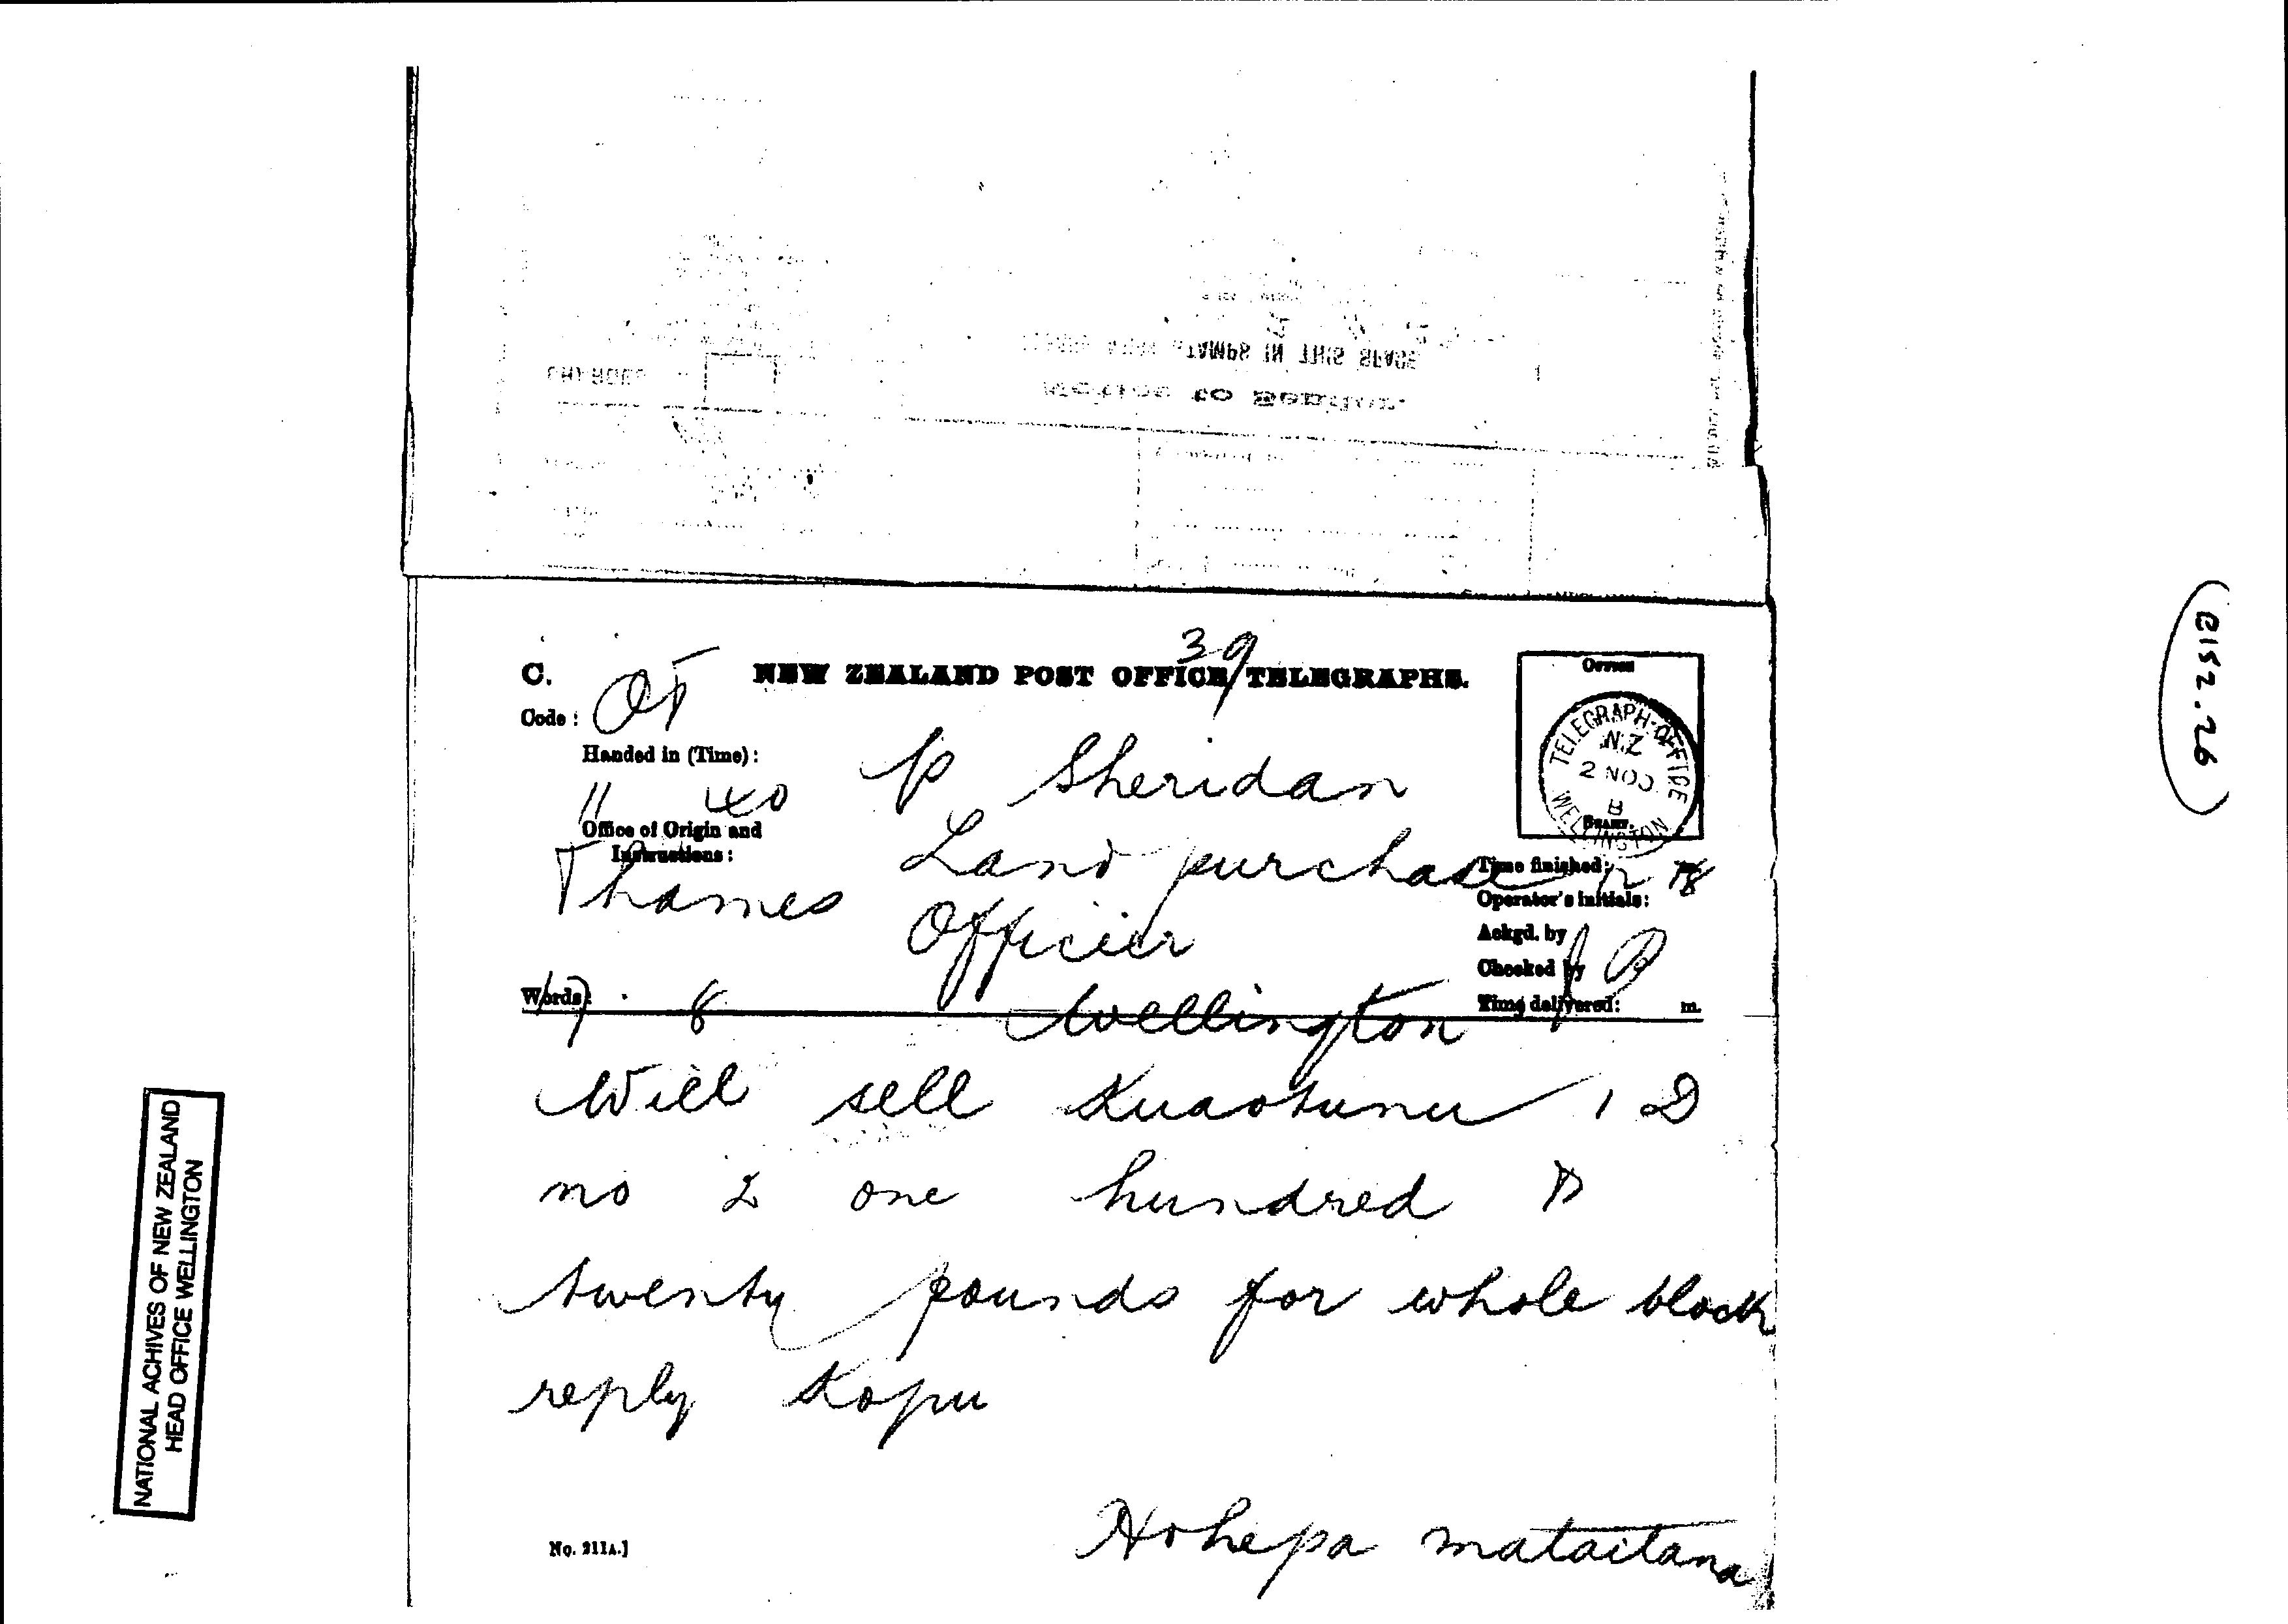 TAMPS IN THIS SPACE
Notice to Sender.
39
C. NEW ZEALAND POST OFFICE TELEGRAPHS.
Office
Code: OT
TELEGRAPH-OFFICE
N.Z
2 NO
B
WELLINGTON
Stamp.
Handed in (Time):
11 40
P Sheridan
Office of Origin and
Instructions:
Thames
Land purchase
Officer
Wellington
Time finished:
Operator's initials:
Ackgd. by
Checked by
Time delivered: m.
Words: 8
Will sell Kuaotunu 1 D
no 2 one hundred &
twenty pounds for whole block
reply Kopu
Hohepa mataitana
No. 211A.]
NATIONAL ACHIVES OF NEW ZEALAND
HEAD OFFICE WELLINGTON
(B152.26)